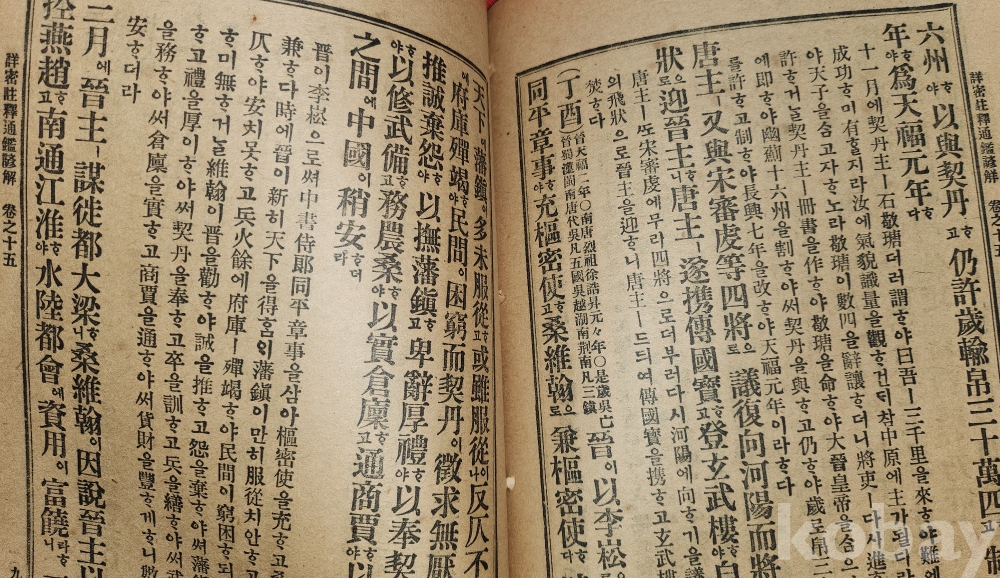 詳密註釋通鑑諺解
六州ᄒᆞ야 以與契丹ᄒᆞ고 仍許歲輸帛三十萬四ᄒᆞ고 制
年ᄒᆞ야 爲天福元年ᄒᆞ다
十一月에 契丹主ㅣ 石敬瑭더러 謂ᄒᆞ야 曰吾ㅣ 三千里을 來ᄒᆞ야 難에
成功ᄒᆞ미 有ᄒᆞᆯ지라 汝에 氣貌識量을 觀ᄒᆞ건ᄃᆡ 참 中原에 主가 될리라
야 天子을 숨고자 ᄒᆞ노라 敬瑭이 數四을 辭讓ᄒᆞ더니 將吏ㅣ 다시 進
許ᄒᆞ거늘 契丹主ㅣ 冊書을 作ᄒᆞ야 敬瑭을 命ᄒᆞ야 大晉皇帝을 숨
에 即ᄒᆞ야 幽薊十六州을 割ᄒᆞ야써 契丹을 與ᄒᆞ고 仍ᄒᆞ야 歲로 帛三
를 許ᄒᆞ고 制ᄒᆞ야 長興七年을 改ᄒᆞ야 天福元年이라 ᄒᆞ다
唐主ㅣ 又與宋審虔等四將으로 議復向河陽而將
狀으로 迎晉主ᄒᆞ니 唐主ㅣ 遂携傳國寶ᄒᆞ고 登玄武樓ᄒᆞ야 自
唐主ㅣ ᄯᅩ 宋審虔에 무리 四將으로 더부러 다시 河陽에 向ᄒᆞ기을 議
의 飛狀으로 晉主을 迎ᄒᆞ니 唐主ㅣ 드듸여 傳國寶을 携ᄒᆞ고 玄武樓
焚ᄒᆞ다
(丁酉) 晉天福二年〇南唐烈祖徐誥昇元々年〇是歲吳亡晉蜀漢閩南唐代吳凡五國吳越湖南荆南凡三鎭 晉이 以李崧으로
同平章事ᄒᆞ야 充樞密使ᄒᆞ고 桑維翰으로 兼樞密使ᄒᆞ다
天下藩鎭이 多未服從ᄒᆞ고 或雖服從이나 反仄不
에 府庫殫竭ᄒᆞ야 民間이 困窮而契丹이 徵求無厭
推誠棄怨ᄒᆞ야 以撫藩鎭ᄒᆞ고 卑辭厚禮ᄒᆞ야 以奉契
ᄒᆞ야 以修武備ᄒᆞ고 務農桑ᄒᆞ야 以實倉廩ᄒᆞ고 通商賈ᄒᆞ야 以
之間에 中國이 稍安ᄒᆞ더라
晋이 李崧으로써 中書侍郎同平章事을 삼아 樞密使을 充ᄒᆞ고
兼ᄒᆞ다 時에 晉이 新히 天下을 得ᄒᆞᄆᆡ 藩鎭이 만히 服從치 안ᄒᆞ고
仄ᄒᆞ야 安치 못ᄒᆞ고 兵火餘에 府庫ㅣ 殫竭ᄒᆞ야 民間이 窮困ᄒᆞ되
ᄒᆞ미 無ᄒᆞ거늘 維翰이 晋을 勸ᄒᆞ야 誠을 推ᄒᆞ고 怨을 棄ᄒᆞ야써 藩鎭
ᄒᆞ고 禮을 厚이 ᄒᆞ야써 契丹을 奉ᄒᆞ고 卒을 訓ᄒᆞ고 兵을 繕ᄒᆞ야써 武
을 務ᄒᆞ야써 倉廩을 實ᄒᆞ고 商賈을 通ᄒᆞ야써 貨財을 豐ᄒᆞ게 ᄒᆞ니 數
安ᄒᆞ더라
二月에 晉主ㅣ 謀徙都大梁ᄒᆞ니 桑維翰이 因說晉主以
控燕趙ᄒᆞ고 南通江淮ᄒᆞ야 水陸都會에 資用이 富饒ᄒᆞ니라
詳密註釋通鑑諺解 卷之十五 九
kobay